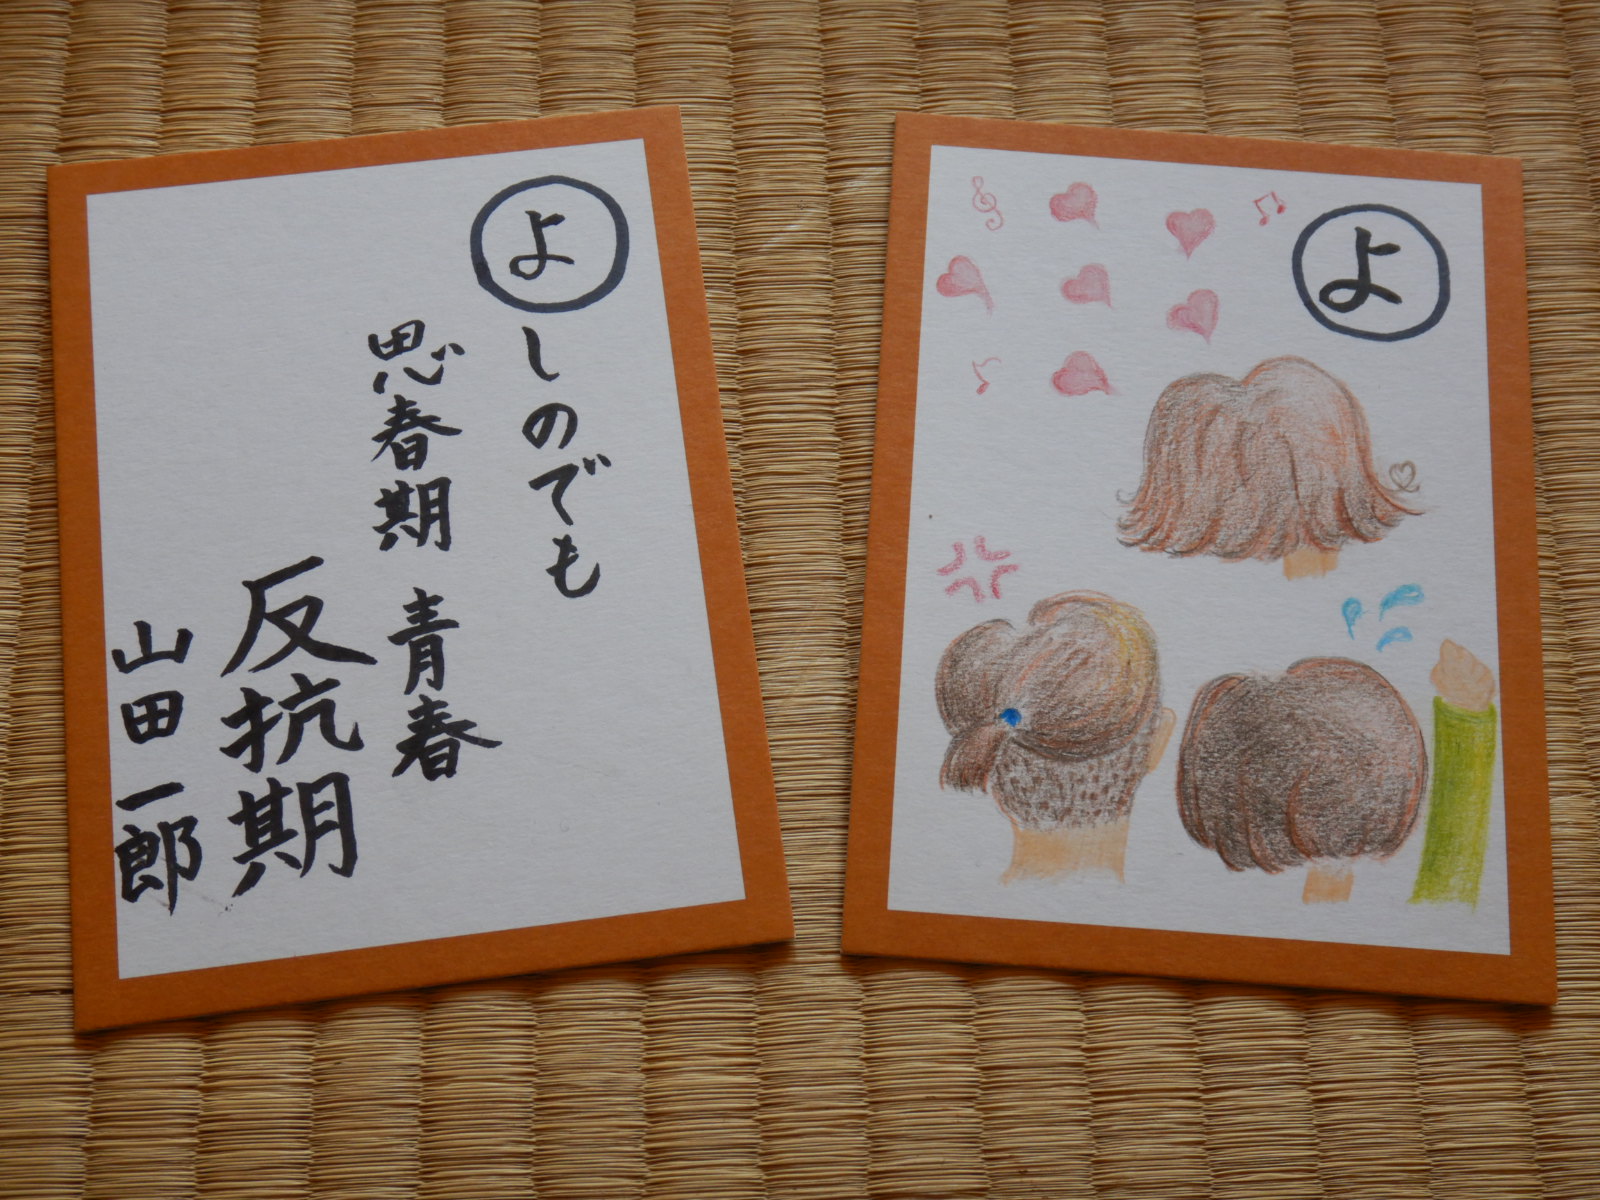 よ
しのでも
思春期 青春
反抗期
山田一郎
よ